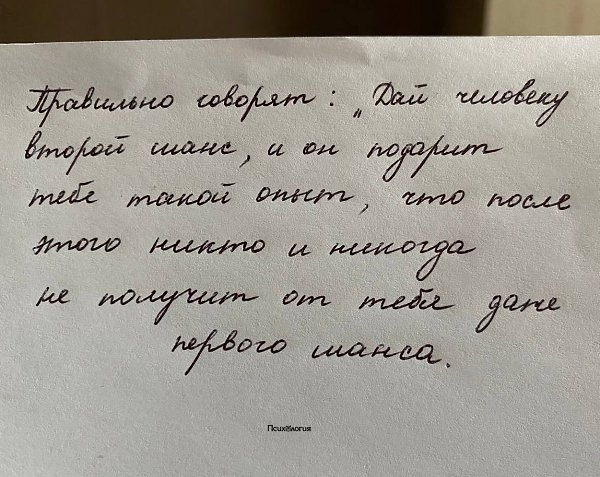 Правильно говорят: „Дай человеку
второй шанс, и он подарит
тебе такой опыт, что после
этого никто и никогда
не получит от тебя даже
первого шанса.
Психология